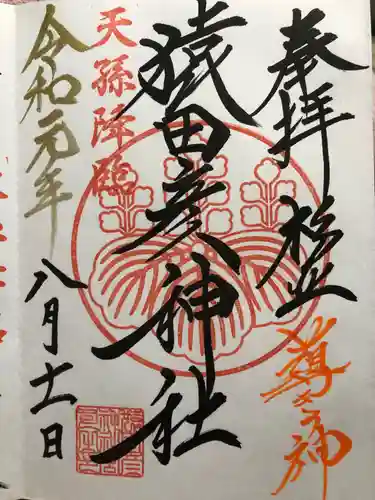 奉拝 杉並
導之神
猿田彦神社
天孫降臨
令和元年
八月十一日